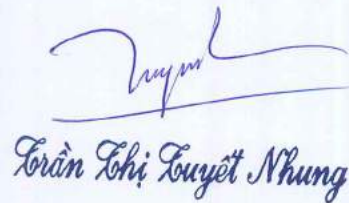 Trần Thị Tuyết Nhung